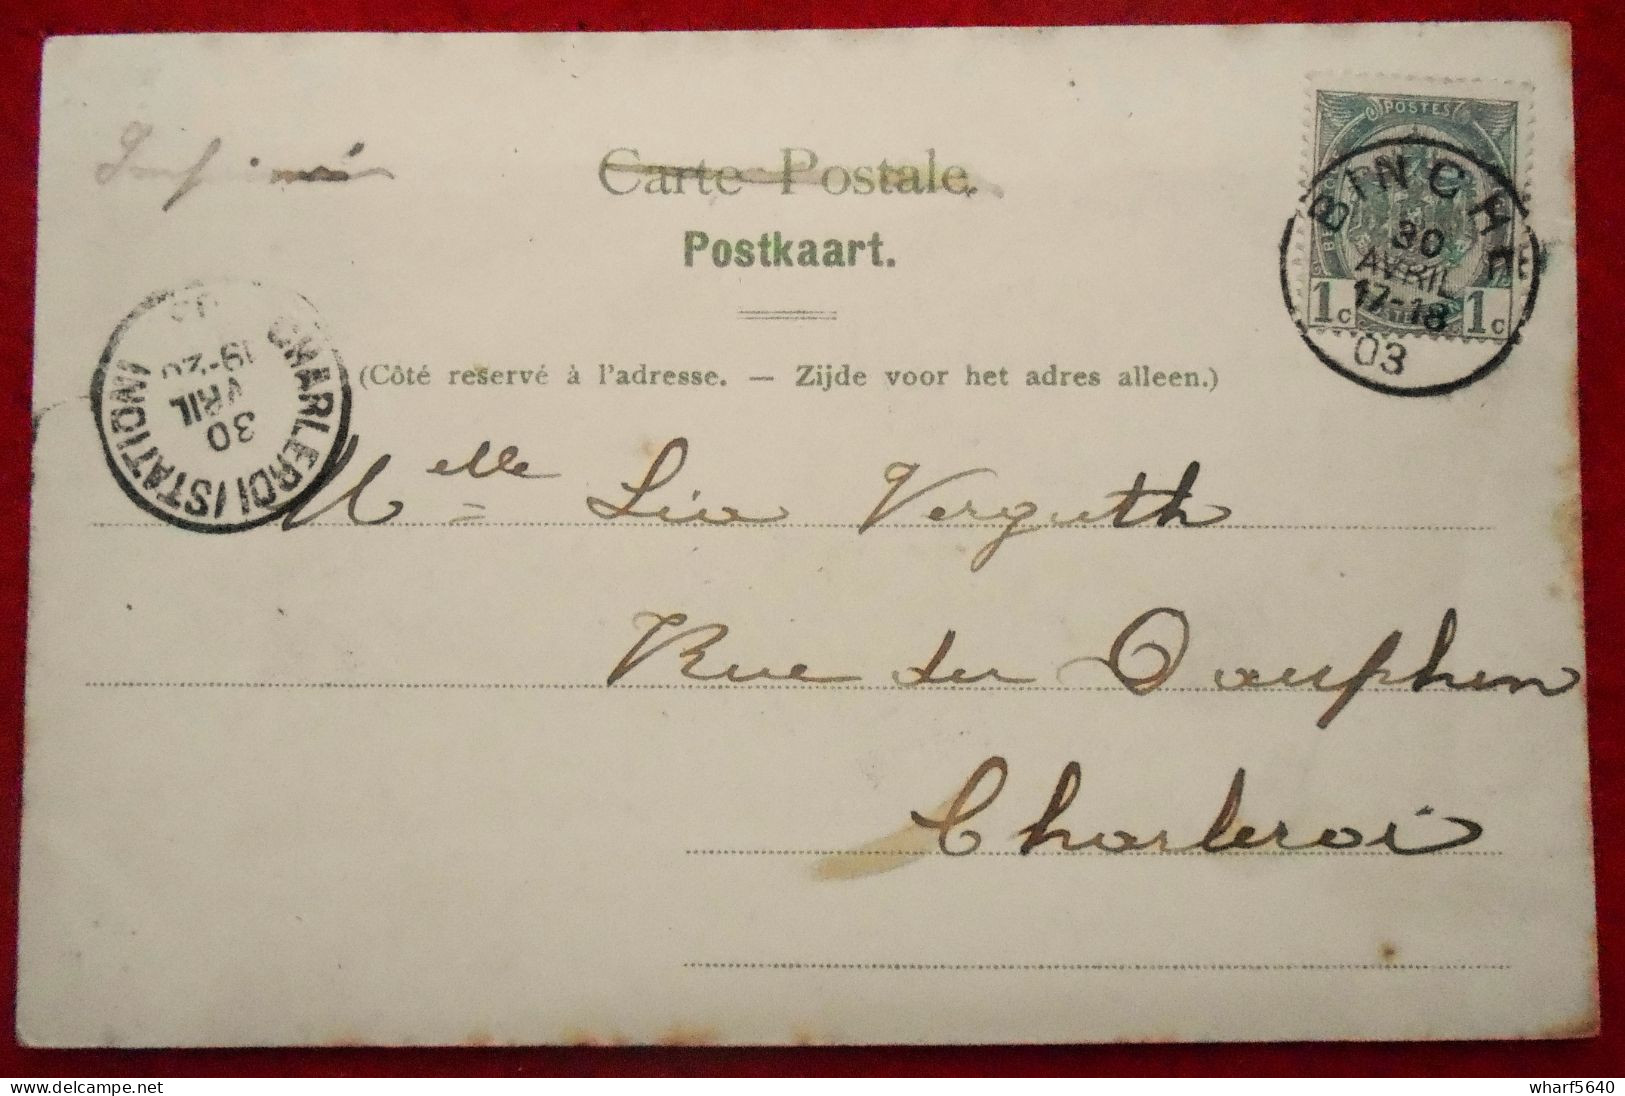 Imprimé
Carte Postale.
Postkaart.
POSTES
BINCHE
30
AVRIL
17-18
03
1c 1c
CHARLEROI (STATION)
19-20
VRIL
30
(Côté reservé à l'adresse. — Zijde voor het adres alleen.)
Melle Léa Verguth
Rue du Dauphin
Charleroi
www.delcampe.net
wharf5640